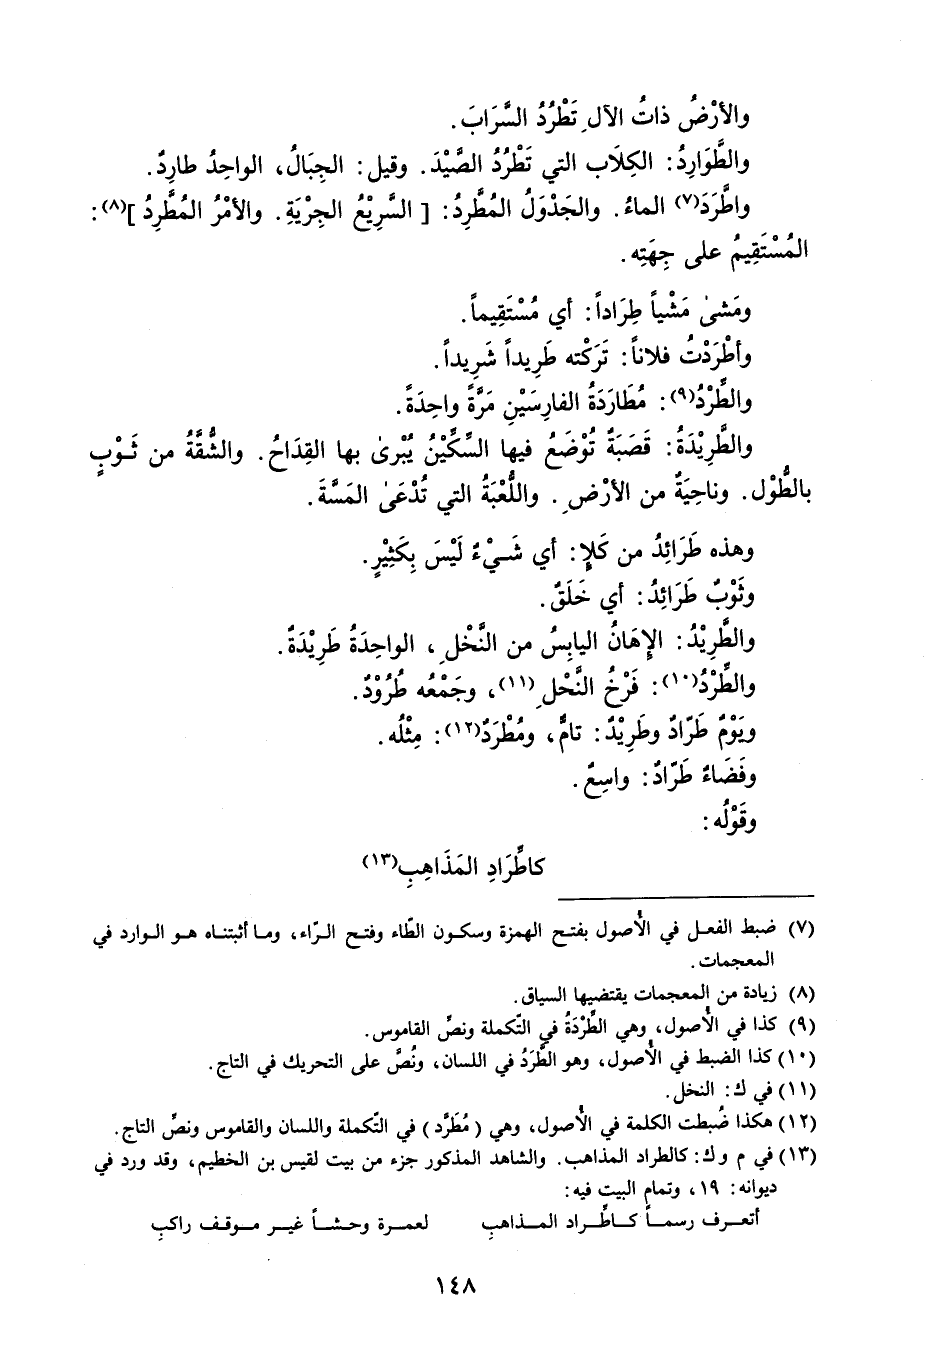 والأرْضُ ذاتُ الآلِ تَطْرُدُ السَّرَابَ.
والطَّوَارِدُ: الكِلَاب التي تَطْرُدُ الصَّيْدَ. وقيل: الجِبَالُ، الواحِدُ طارِدٌ.
واطَّرَدَ(٧) الماءُ. والجَدْوَلُ المُطَّرِدُ: [ السَّرِيْعُ الجِرْيَةِ. والأمْرُ المُطَّرِدُ ](٨):
المُسْتَقِيمُ على جِهَتِه.
ومَشىٰ مَشْياً طِرَاداً: أي مُسْتَقِيماً.
وأطْرَدْتُ فلاناً: تَرَكْته طَرِيداً شَرِيداً.
والطِّرْدُ(٩): مُطَارَدَةُ الفارِسَيْنِ مَرَّةً واحِدَةً.
والطَّرِيْدَةُ: قَصَبَةٌ تُوْضَعُ فيها السِّكِّيْنُ يُبْرىٰ بها القِدَاحُ. والشُّقَّةُ من ثَوْبٍ
بالطُّوْلِ. وناحِيَةٌ من الأرْضِ. واللُّعْبَةُ التي تُدْعَىٰ المَسَّةَ.
وهذه طَرَائِدُ من كَلإٍ: أي شَيْءٌ لَيْسَ بِكَثِيْرٍ.
وثَوْبٌ طَرَائِدُ: أي خَلَقٌ.
والطَّرِيْدُ: الإِهَانُ اليابِسُ من النَّخْلِ، الواحِدَةُ طَرِيْدَةٌ.
والطِّرْدُ(١٠): فَرْخُ النَّحْلِ(١١)، وجَمْعُه طُرُوْدٌ.
ويَوْمٌ طَرّادٌ وطَرِيْدٌ: تامٌّ، ومُطْرَدٌ(١٢): مِثْلُه.
وفَضَاءٌ طَرّادٌ: واسِعٌ.
وقَوْلُه:
كاطِّرَادِ المَذَاهِبِ(١٣)
(٧) ضبط الفعل في الأُصول بفتح الهمزة وسكون الطّاء وفتح الرّاء، وما أثبتناه هو الوارد في
المعجمات.
(٨) زيادة من المعجمات يقتضيها السياق.
(٩) كذا في الأُصول، وهي الطِّرْدَةُ في التّكملة ونصِّ القاموس.
(١٠) كذا الضبط في الأُصول، وهو الطَّرَدُ في اللسان، ونُصَّ على التحريك في التاج.
(١١) في ك: النخل.
(١٢) هكذا ضُبطت الكلمة في الأُصول، وهي (مُطَرَّد) في التّكملة واللسان والقاموس ونصِّ التاج.
(١٣) في م و ك: كالطراد المذاهب. والشاهد المذكور جزء من بيت لقيس بن الخطيم، وقد ورد في
ديوانه: ١٩، وتمام البيت فيه:
أتعرف رسماً كاطِّراد المذاهبِ لعمرة وحشاً غير موقف راكبِ
١٤٨